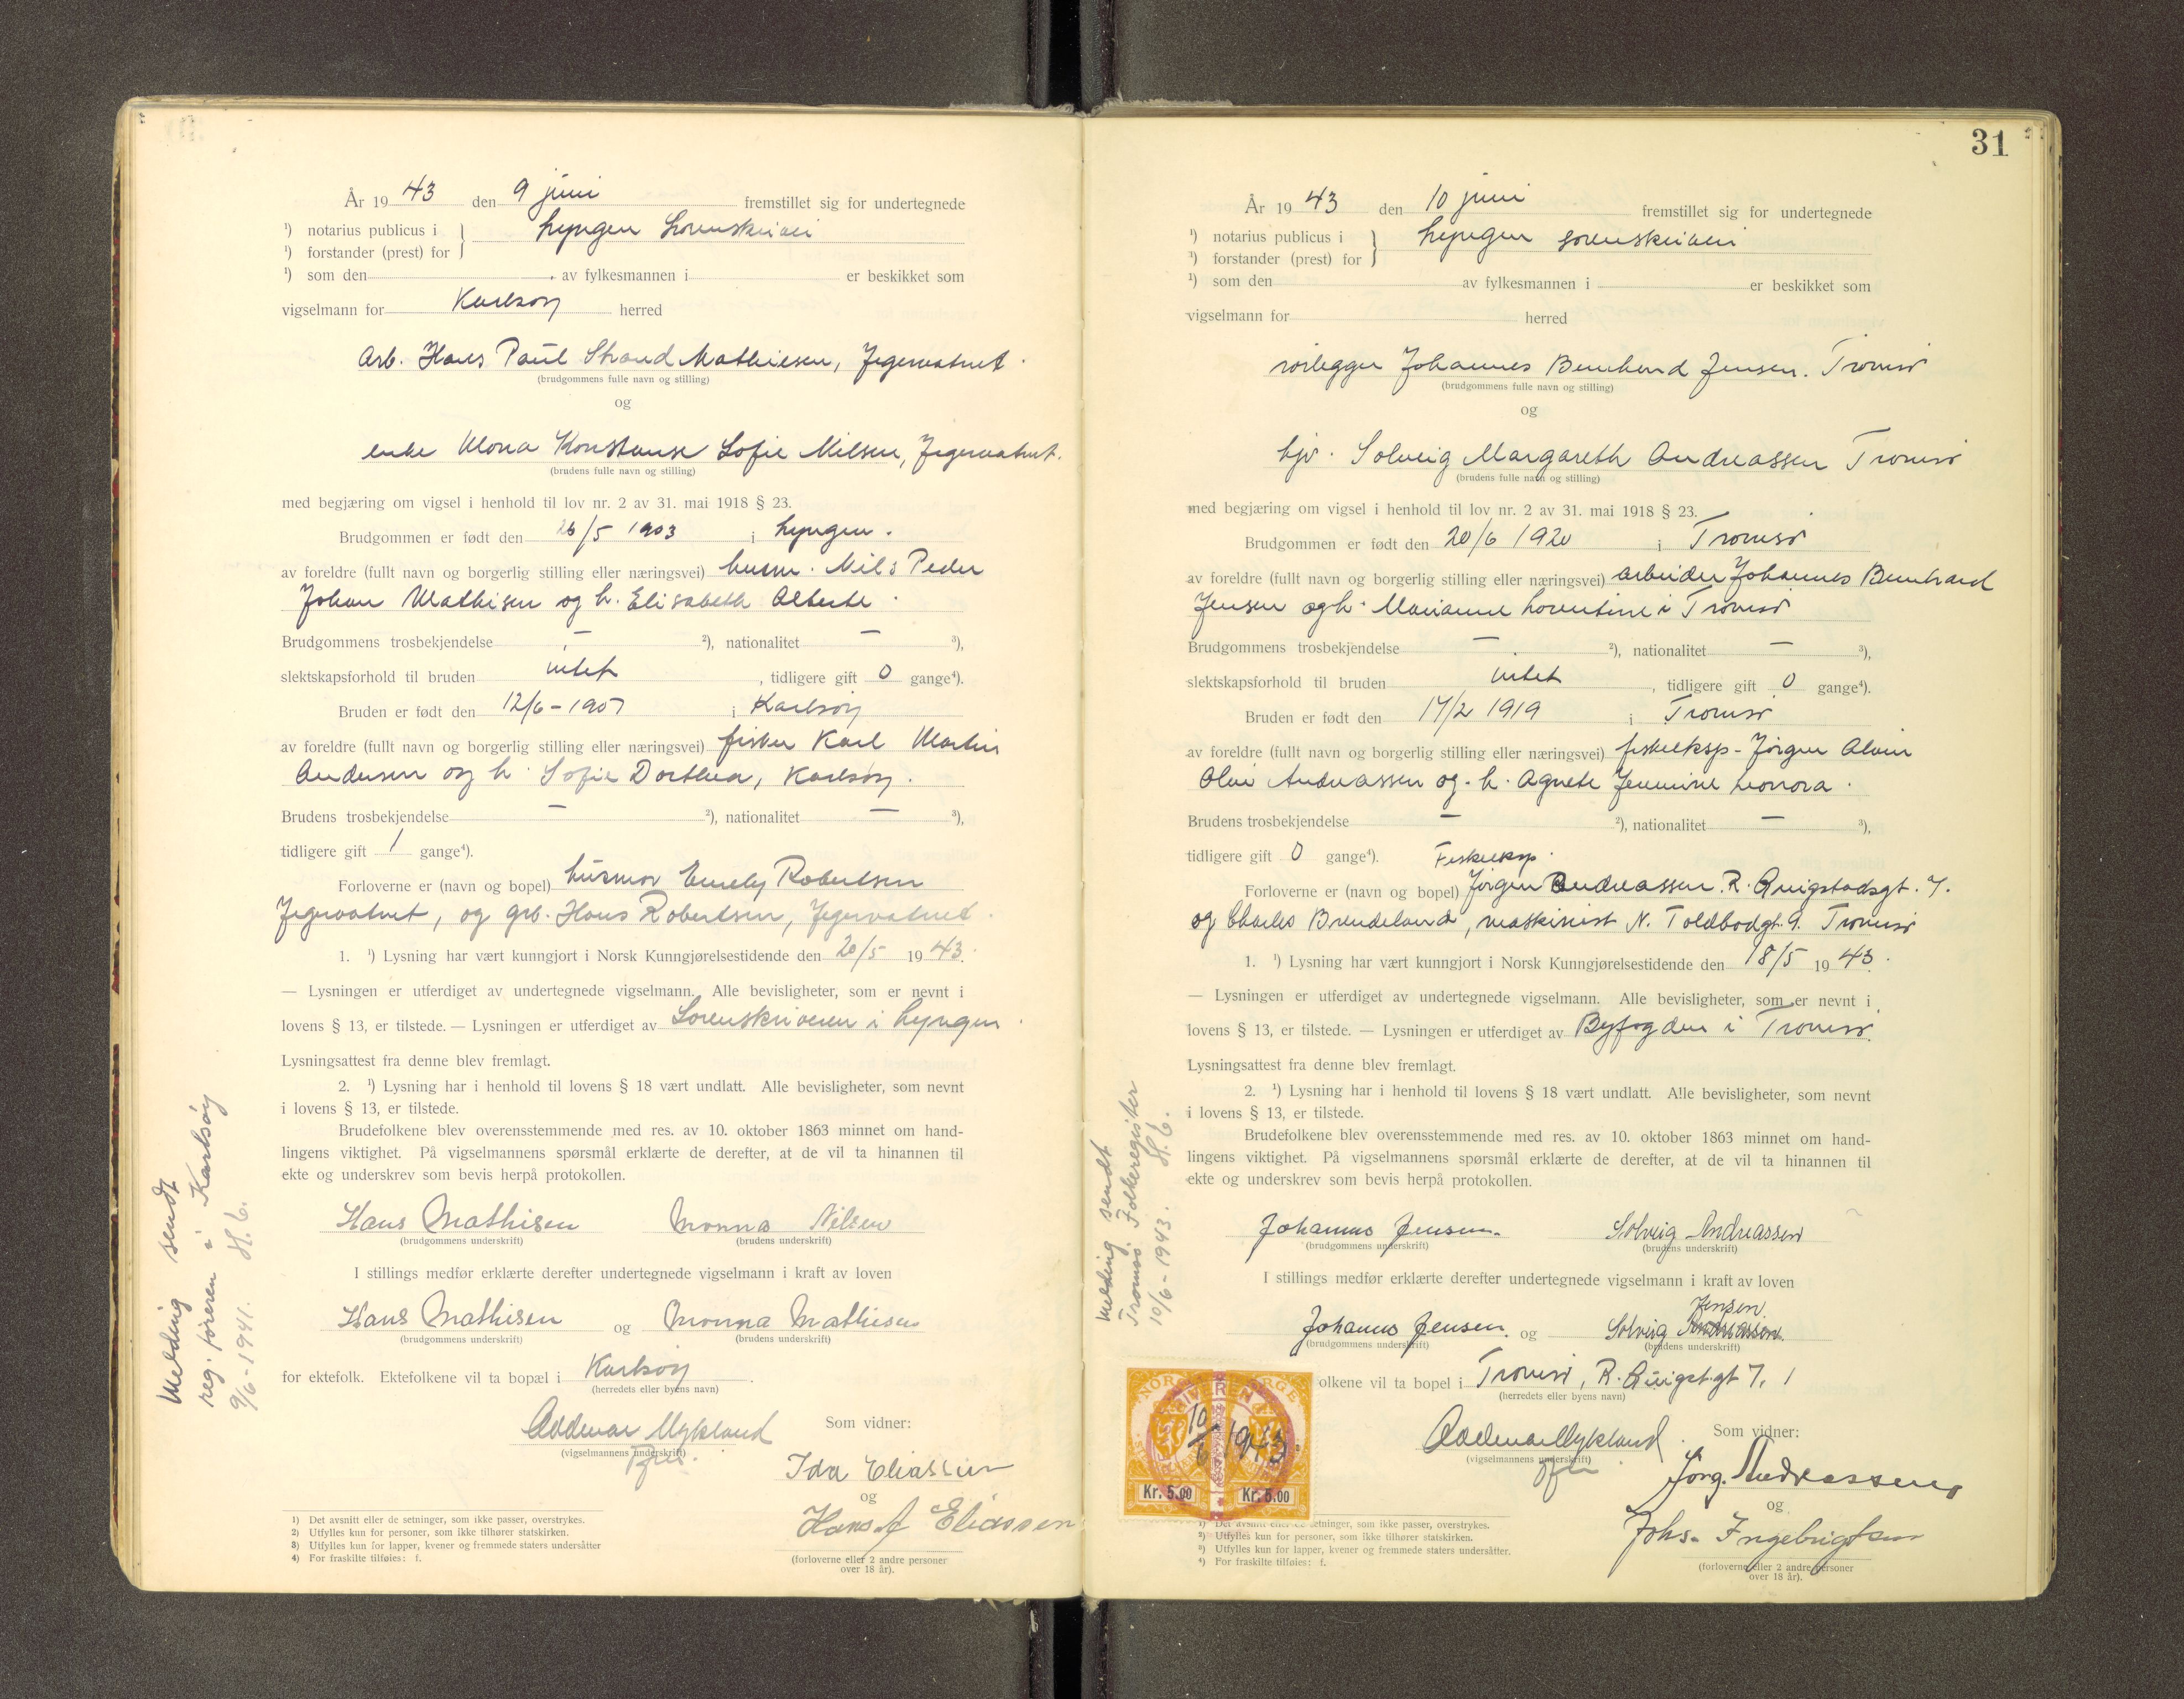 År 1943 den 9 juni fremstillet sig for undertegnede
¹) notarius publicus i } Lyngen Sorenskriveri
¹) forstander (prest) for
¹) som den av fylkesmannen i er beskikket som
vigselmann for Karlsøy herred
Arb. Hans Paul Strand Mathiesen, Jegervatnet.
(brudgommens fulle navn og stilling)
og
enke Mona Konstanse Sofie Nilsen, Jegervatnet.
(brudens fulle navn og stilling)
med begjæring om vigsel i henhold til lov nr. 2 av 31. mai 1918 § 23.
Brudgommen er født den 26/5 1903 i Lyngen.
av foreldre (fullt navn og borgerlig stilling eller næringsvei) husm. Nils Peder
Johan Mathisen og h. Elisabeth Alberte.
Brudgommens trosbekjendelse — ²), nationalitet — ³),
slektskapsforhold til bruden intet, tidligere gift 0 gange⁴).
Bruden er født den 12/6-1907 i Karlsöy
av foreldre (fullt navn og borgerlig stilling eller næringsvei) fisker Karl Martin
Andersen og h. Sofie Dorthea, Karlsøy.
Brudens trosbekjendelse — ²), nationalitet — ³),
tidligere gift 1 gange⁴).
Forloverne er (navn og bopel) husmor Emely Robertsen
Jegervatnet, og grb. Hans Robertsen, Jegervatnet.
1. ¹) Lysning har vært kunngjort i Norsk Kunngjørelsestidende den 20/5 1943.
— Lysningen er utferdiget av undertegnede vigselmann. Alle bevisligheter, som er nevnt i
lovens § 13, er tilstede. — Lysningen er utferdiget av Sorenskriveren i Lyngen.
Lysningsattest fra denne blev fremlagt.
2. ¹) Lysning har i henhold til lovens § 18 vært undlatt. Alle bevisligheter, som nevnt
i lovens § 13, er tilstede.
Brudefolkene blev overensstemmende med res. av 10. oktober 1863 minnet om hand-
lingens viktighet. På vigselmannens spørsmål erklærte de derefter, at de vil ta hinannen til
ekte og underskrev som bevis herpå protokollen.
Hans Mathisen Monna Nilsen
(brudgommens underskrift) (brudens underskrift)
I stillings medfør erklærte derefter undertegnede vigselmann i kraft av loven
Hans Mathisen og Monna Mathisen
(brudgommens underskrift) (brudens underskrift)
for ektefolk. Ektefolkene vil ta bopæl i Karlsöy.
(herredets eller byens navn)
Oddmar Mykland Som vidner:
(vigselmannens underskrift)
Ida Eliassen
og
Hans A Eliassen
(forloverne eller 2 andre personer
over 18 år).
1) Det avsnitt eller de setninger, som ikke passer, overstrykes.
2) Utfylles kun for personer, som ikke tilhører statskirken.
3) Utfylles kun for lapper, kvener og fremmede staters undersåtter
4) For fraskilte tilføies: f.
Melding sendt
reg. föreren i Karlsöy
9/6-1941. H.C.
31
År 1943 den 10 juni fremstillet sig for undertegnede
¹) notarius publicus i } Lyngen sorenskriveri
¹) forstander (prest) for
¹) som den av fylkesmannen i er beskikket som
vigselmann for herred
rörlegger Johannes Bernhard Jensen. Tromsö
(brudgommens fulle navn og stilling)
og
hjv. Solveig Margareth Andreassen Tromsö
(brudens fulle navn og stilling)
med begjæring om vigsel i henhold til lov nr. 2 av 31. mai 1918 § 23.
Brudgommen er født den 20/6 1920 i Tromsö
av foreldre (fullt navn og borgerlig stilling eller næringsvei) arbeider Johannes Bernhard
Jensen og h. Marianne Lorentine i Tromsö
Brudgommens trosbekjendelse — ²), nationalitet — ³),
slektskapsforhold til bruden intet, tidligere gift 0 gange⁴).
Bruden er født den 17/2 1919 i Tromsö
av foreldre (fullt navn og borgerlig stilling eller næringsvei) fiskeeksp- Jörgen Alvin
Olai Andreassen og h. Agnete Jenmine Leonora.
Brudens trosbekjendelse — ²), nationalitet — ³),
tidligere gift 0 gange⁴). Fiskeeksp.
Forloverne er (navn og bopel) Jörgen Andreassen. R. Qvigstadsgt. 7.
og Charles Brendeland, maskinist N. Toldbodgt. 9. Tromsö
1. ¹) Lysning har vært kunngjort i Norsk Kunngjørelsestidende den 18/5 1943.
— Lysningen er utferdiget av undertegnede vigselmann. Alle bevisligheter, som er nevnt i
lovens § 13, er tilstede. — Lysningen er utferdiget av Byfogden i Tromsö.
Lysningsattest fra denne blev fremlagt.
2. ¹) Lysning har i henhold til lovens § 18 vært undlatt. Alle bevisligheter, som nevnt
i lovens § 13, er tilstede.
Brudefolkene blev overensstemmende med res. av 10. oktober 1863 minnet om hand-
lingens viktighet. På vigselmannens spørsmål erklærte de derefter, at de vil ta hinannen til
ekte og underskrev som bevis herpå protokollen.
Johannes Jensen. Solveig Andreassen
(brudgommens underskrift) (brudens underskrift)
I stillings medfør erklærte derefter undertegnede vigselmann i kraft av loven
Jensen
Johannes Jensen. og Solveig Andreassen
(brudgommens underskrift) (brudens underskrift)
olkene vil ta bopel i Tromsö, R. Qvigst.gt 7, 1
(herredets eller byens navn)
Oddmar Mykland. Som vidner:
(vigselmannens underskrift)
Jørg. Andreassen
og
Johs. Ingebrigtsen
(forloverne eller 2 andre personer
over 18 år).
NORGE NORGE
10/6 1943.
Kr. 5.00 Kr. 5.00
1) Det avsnitt eller de setninger, som ikke passer, overstrykes.
2) Utfylles kun for personer, som ikke tilhører statskirken.
3) Utfylles kun for lapper, kvener og fremmede staters undersåtter.
4) For fraskilte tilføies: f.
Melding sendt
Tromsö. Folkeregister
10/6-1943. H.C.